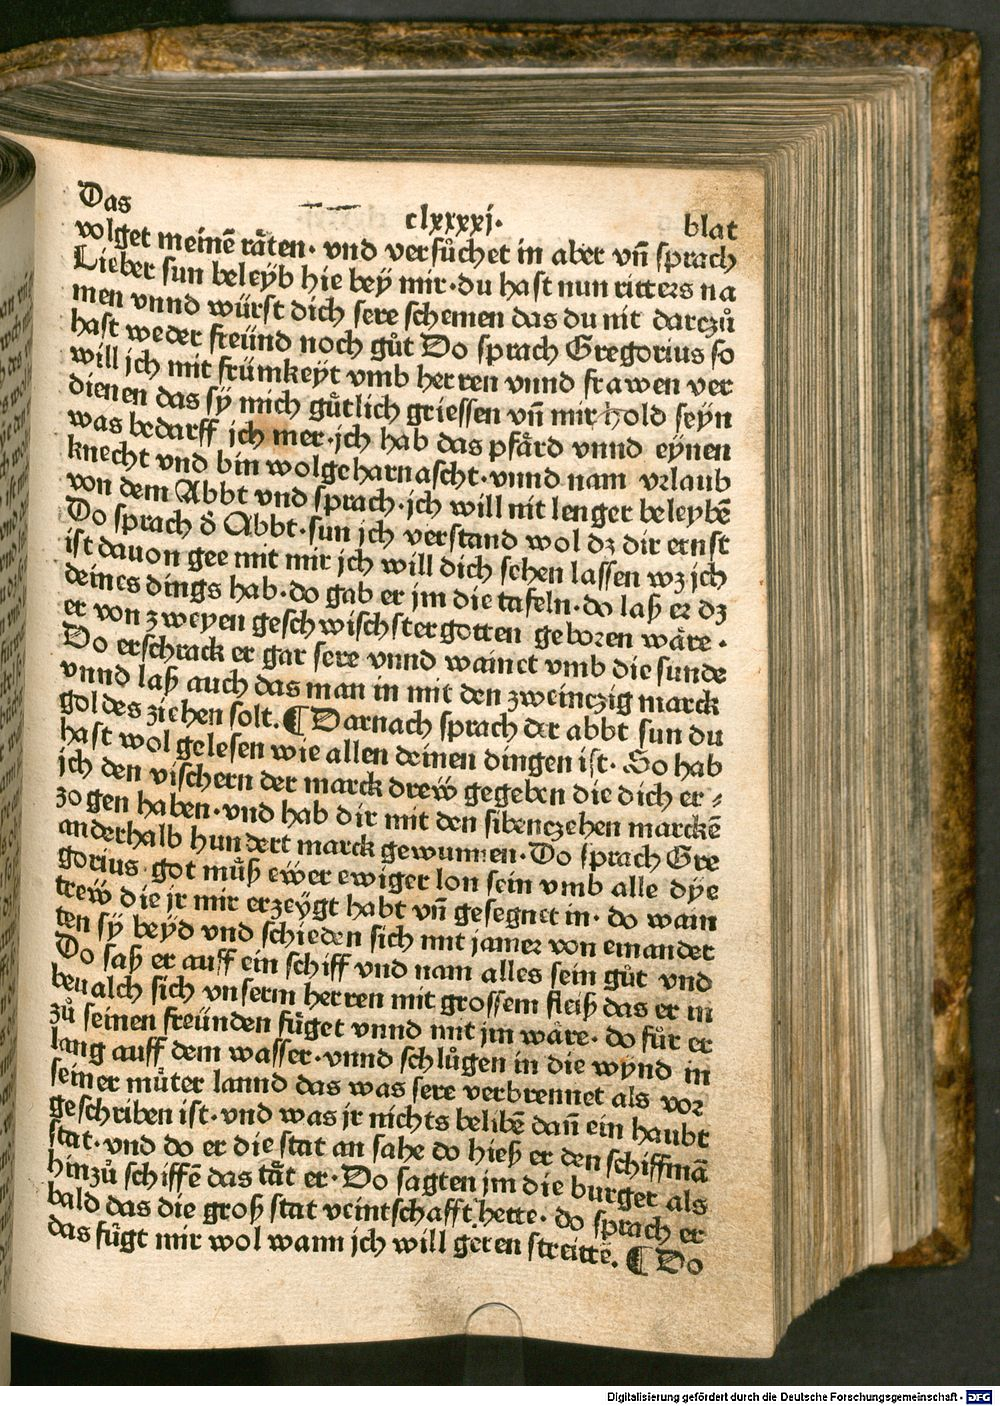 Das clxxxxj. blat
volget meinē råten· vnd versůchet in aber vn̄ sprach
Lieber sun beleyb hie bey mir·du hast nun ritters na
men vnnd würst dich sere schemen das du nit darczů
hast weder freünd noch gůt Do sprach Gregorius so
will jch mit frümkeÿt vmb herren vnnd frawen ver
dienen das sÿ mich gůtlich griessen vn̄ mir hold seyn
was bedarff jch mer·jch hab das pfård vnnd eynen
knecht vnd bin wolgeharnascht·vnnd nam vrlaub
von dem Abbt vnd sprach·jch will nit lenger beleybē
Do sprach d̕ Abbt·sun jch verstand wol dz dir ernst
ist dauon gee mit mir jch will dich sehen lassen wz jch
deines dings hab·do gab er jm die tafeln·do laß er dz
er von zweyen geschwischstergotten geboren wåre·
Do erschrack er gar sere vnnd wainet vmb die sunde
vnnd laß auch das man in mit den zweinczig marck
goldes ziehen solt.¶ Darnach sprach der abbt sun du
hast wol gelesen wie allen deinen dingen ist· So hab
jch den vischern der marck drew̃ gegeben die dich er⸗
zogen haben·vnd hab dir mit den sibenczehen marckē
anderhalb hundert marck gewunnen·Do sprach Gre
gorius·got můß ewer ewiger lon sein vmb alle dÿe
trew̃ die jr mir erzeÿgt habt vn̄ gesegnet in· do wain
ten sÿ beÿd vnd schieden sich mit jamer von einander
Do saß er auff ein schiff vnd nam alles sein gůt vnd
beualch sich vnserm herren mit grossem fleiß das er in
zů seinen freünden fůget vnnd mit jm wåre·do fůr er
lang auff dem wasser·vnnd schlůgen in die wynd in
seiner můter lannd das was sere verbrennet als vor
geschriben ist·vnd was jr nichts belibē dan̄ ein haubt
stat·vnd do er die stat an sahe do hieß er den schiffmā
hinzů schiffē das tåt er·Do sagten jm die burger als
bald das die groß stat veintschafft hette·do sprach er
das fůgt mir wol wann jch will geren streittē.¶ Do
Digitalisierung gefördert durch die Deutsche Forschungsgemeinschaft - DFG